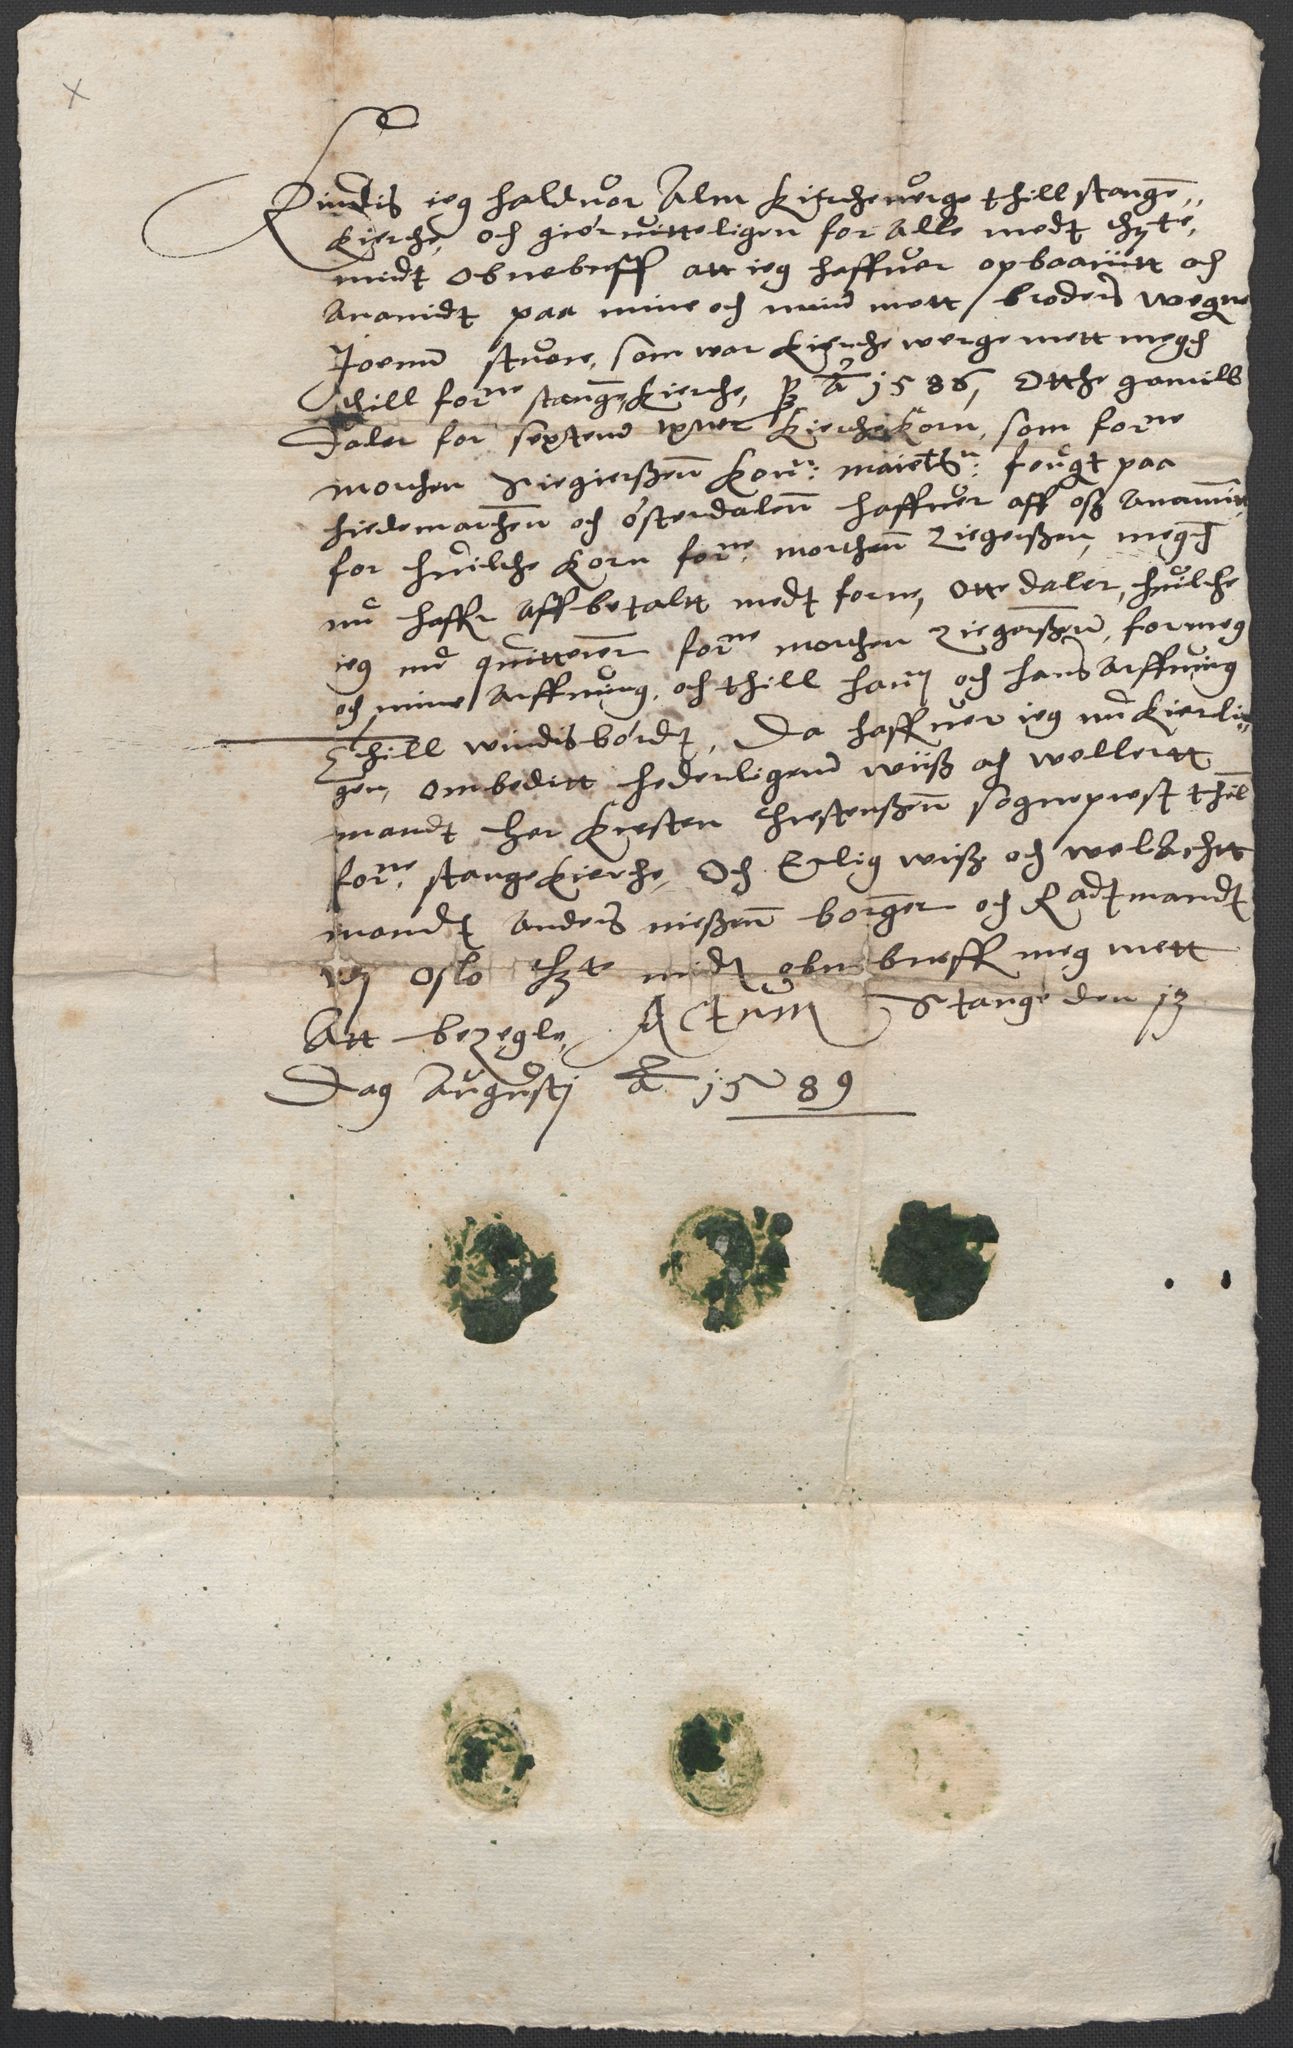 Kiendis ieg haldvor Alm kircheuerge thill stange,,
kierche, och giør vitteligen for Alle medt thzte,
midt obnebreff att ieg haffuer opbaaritt och
Anamidt paa mine och mind mett broders wegne
Joenn som war kierche werge mett megh
thill forne stange kierche, p A 1586, Otthe gamill
daler for sextend kierche korn, som forne
morthen kon: maietts: fougt paa
hiedemarchen och østerdalenn haffuer aff osz Anammitt
for huilche korn forne morthenn Ziegerszen, megh
nu haffr Affbetaltt medt forne, Otte daler, huilche
ieg nu quitterer forne morthen Ziegerszenn, for meg
och mine Arffuing, och thill hannom och hans Arffuing
Thill windisbördt, Da haffuer ieg nu kierli,,
gen, ombeditt hederligend wiisz och wellertt
mandt her kresten chrestenszenn sogneprest thill
forne stange kierche, Och Erlig wisz och welacht
mandt anders nieszenn borger och Radtmandt
vdj Oslo thzte midt obne breff meg mett
Att bezegle, Actum Stange den 13
Dag Augustj A 1589